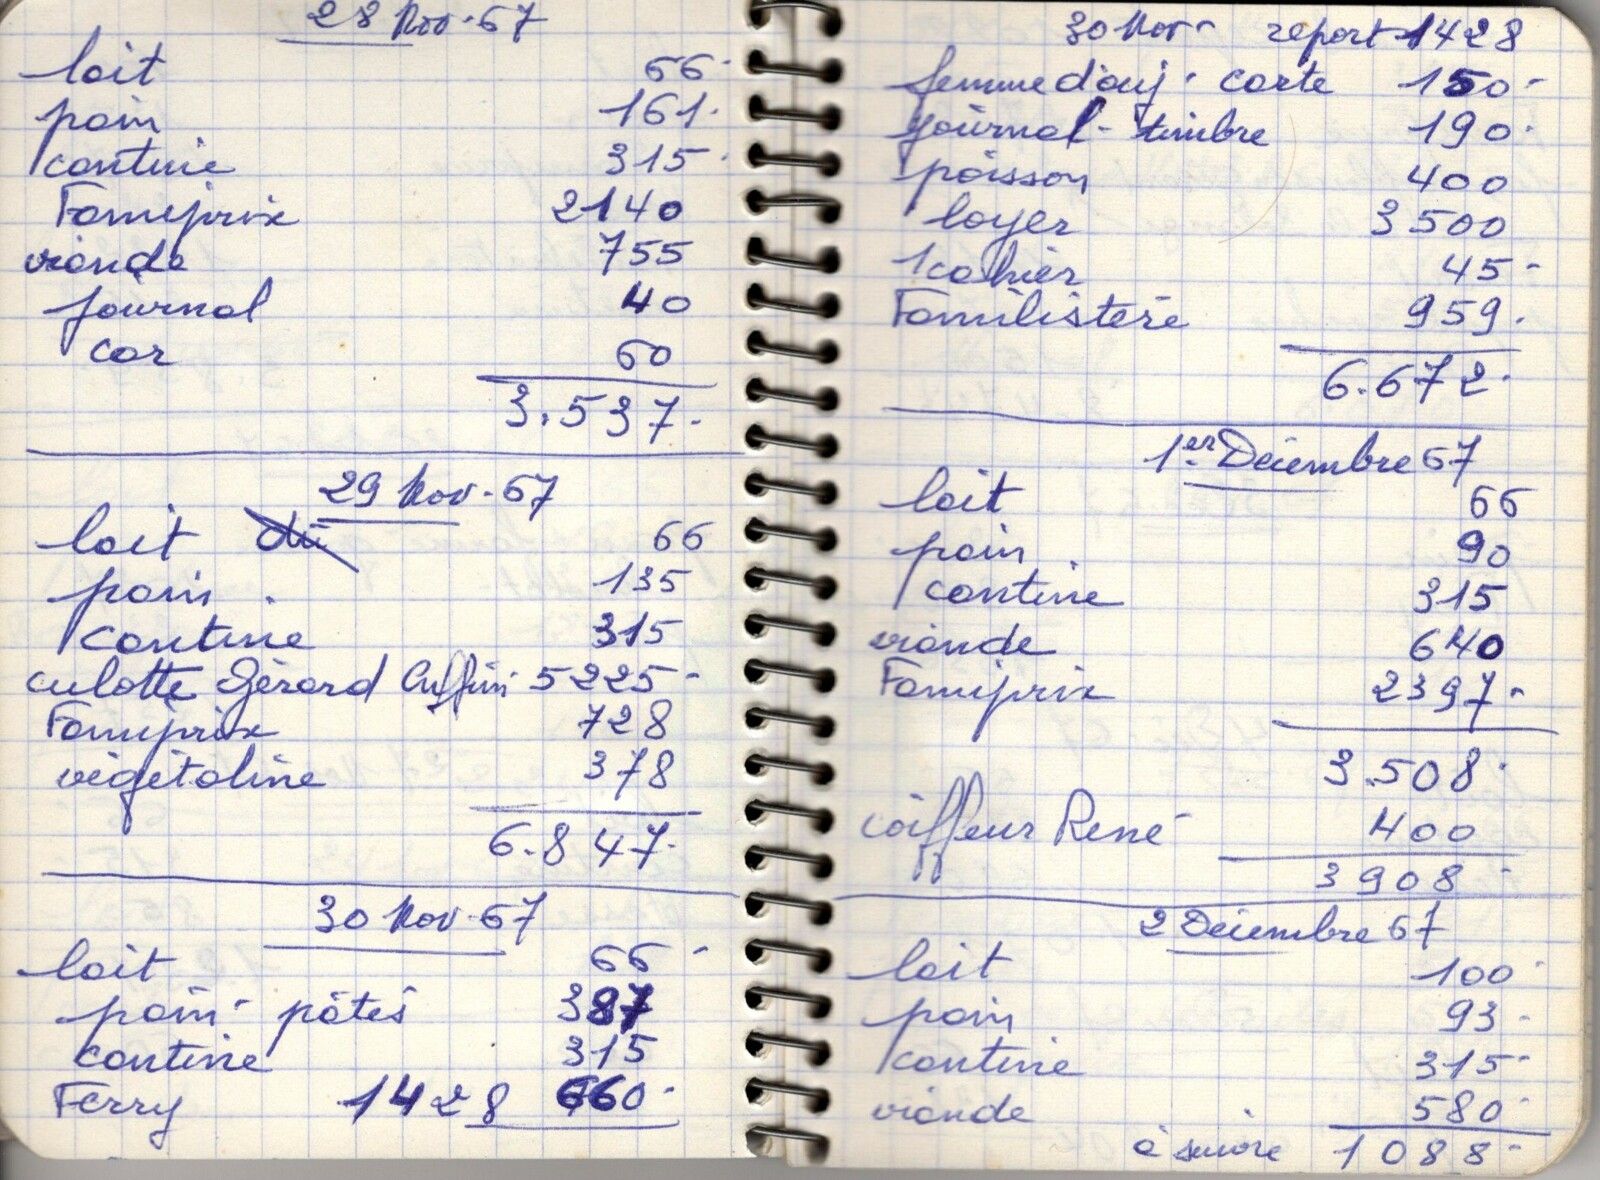 28 Nov. 67
lait 66-
pain 161.
cantine 315-
Famiprix 2140
viande 755
journal 40
car 60
3.537.-
29 Nov. 67
lait 66
pain 135
cantine 315
culotte Gérard 5225-
Famiprix 728
végétaline 378
6.847.-
30 Nov. 67
lait 66-
pain pâtes 387
cantine 315
Ferry 1428 660-
30 Nov- report 1428
femme d'auj. carte 150-
journal - timbre 190-
poisson 400
loyer 3500
1 cahier 45-
Familistère 959.
6.672.-
1er Décembre 67
lait 66
pain 90
cantine 315
viande 640
Famiprix 2397-
3.508-
coiffeur René 400
3908-
2 Décembre 67
lait 100-
pain 93-
cantine 315-
viande 580-
à suivre 1088-